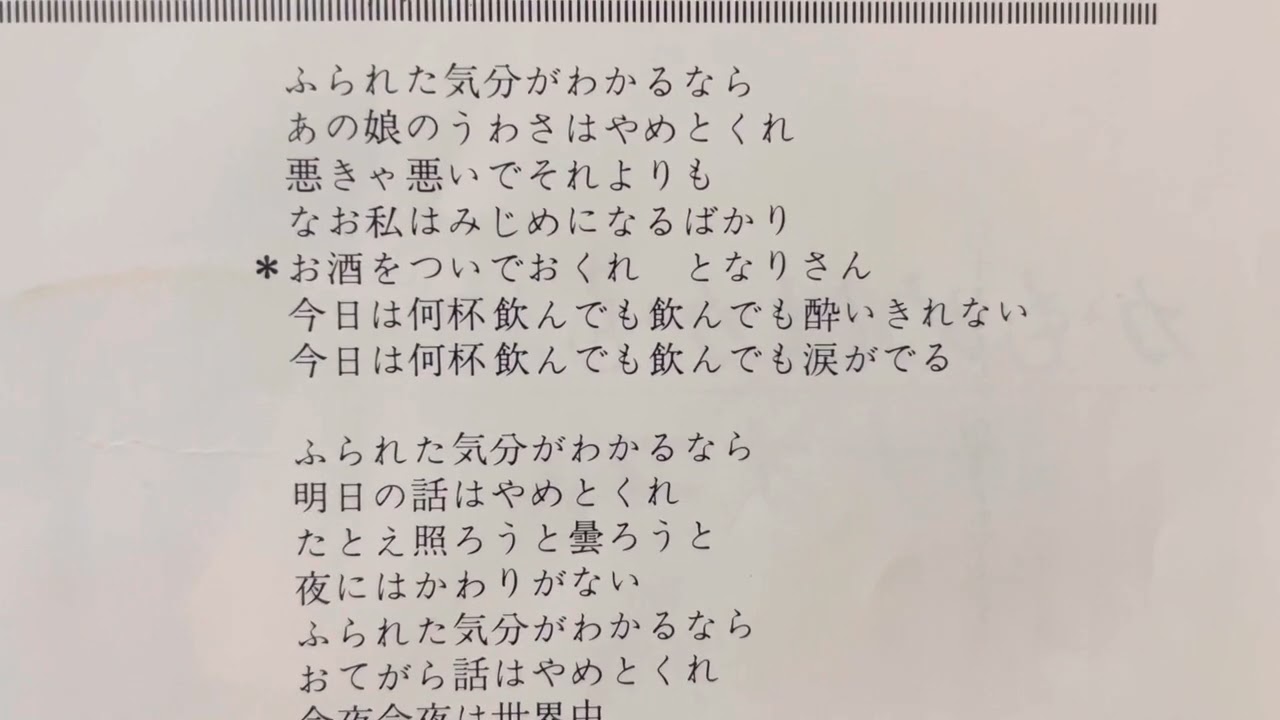 ふられた気分がわかるなら
あの娘のうわさはやめとくれ
悪きゃ悪いでそれよりも
なお私はみじめになるばかり
*お酒をついでおくれ　となりさん
今日は何杯飲んでも飲んでも酔いきれない
今日は何杯飲んでも飲んでも涙がでる

ふられた気分がわかるなら
明日の話はやめとくれ
たとえ照ろうと曇ろうと
夜にはかわりがない
ふられた気分がわかるなら
おてがら話はやめとくれ
今夜今夜は世界中